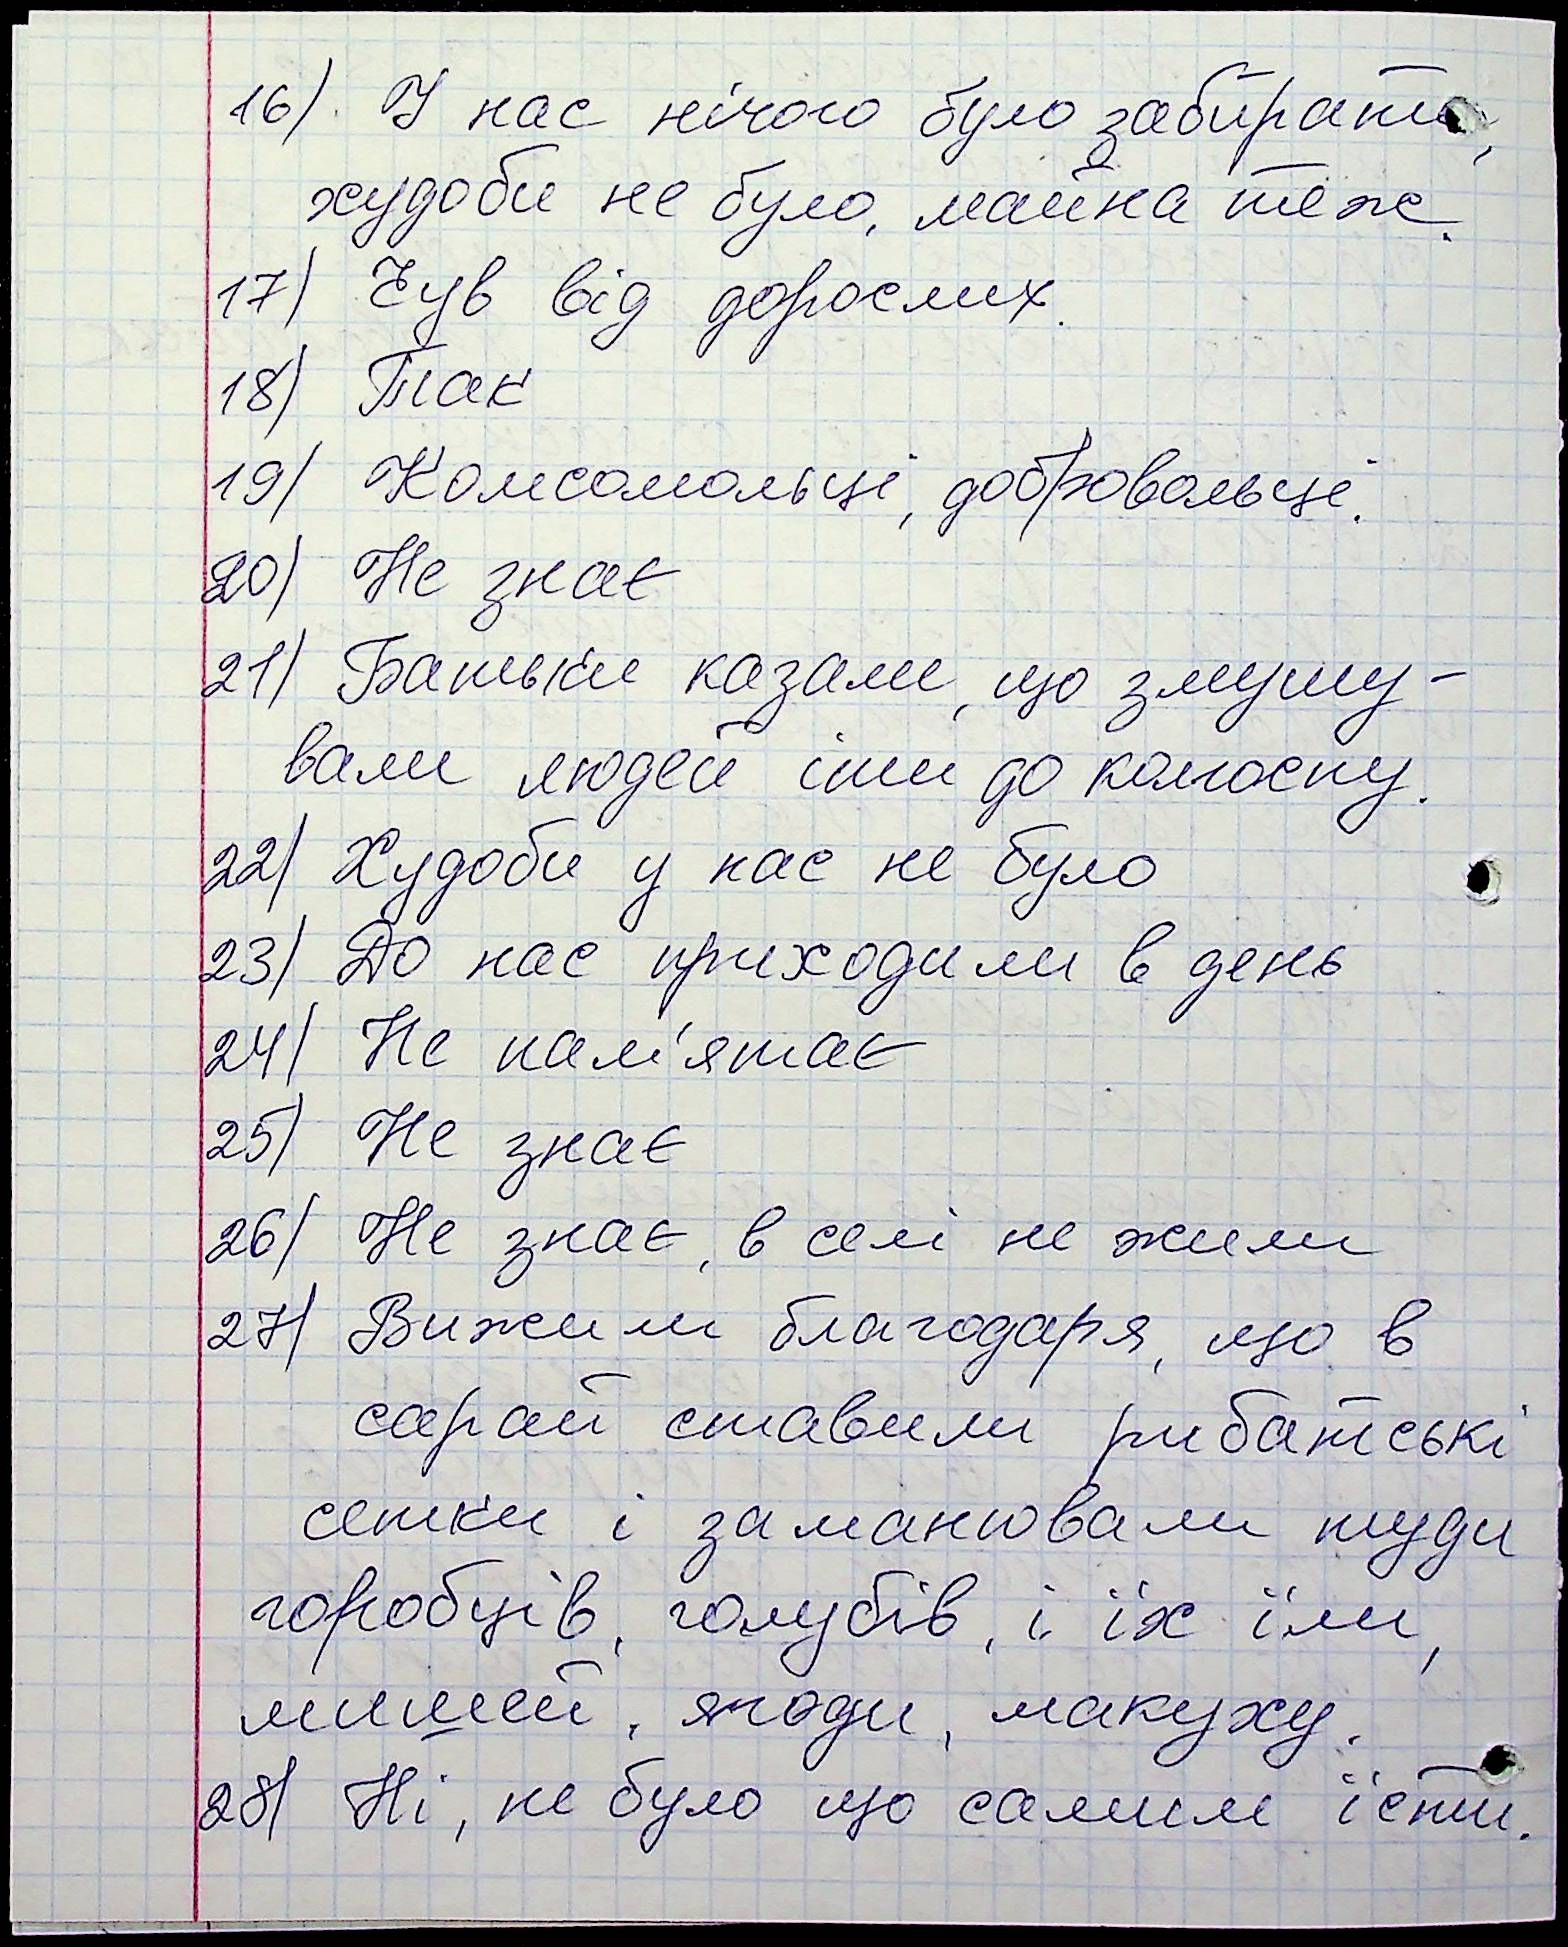 16) У нас нічого було забирати,
худоби не було, майна теж.
17) Чув від дорослих.
18) Так
19) Комсомольці, добровольці.
20) Не знає
21) Батьки казали, що змушу-
вали людей іти до колгоспу.
22) Худоби у нас не було
23) До нас приходили в день
24) Не пам'ятає
25) Не знає
26) Не знає, в селі не жили
27) Вижили благодаря, що в
сарай ставили рибатські
сетки і заманювали туди
горобців, голубів, і їх їли,
мишей, ягоди, макуху.
28) Ні, не було що самим їсти.